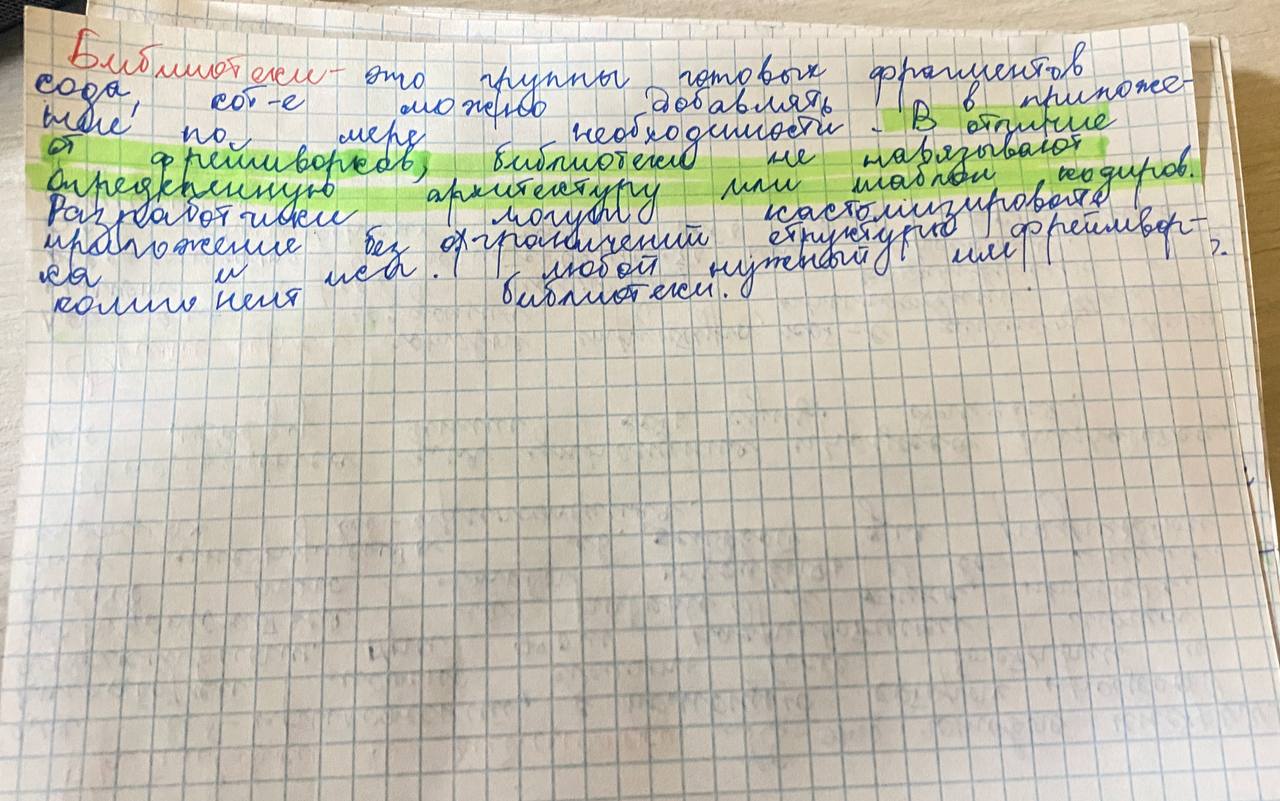 Библиотеки - это группы готовых фрагментов
кода, кот-е можно добавлять в приложе-
ние по мере необходимости. В отличие
от фреймворков, библиотеки не навязывают
определенную архитектуру или шаблон кодиров.
Разработчики могут кастомизировать
приложение без ограничений структуры фреймвор-
ка и исп. любой нужный или
компонент библиотеки.